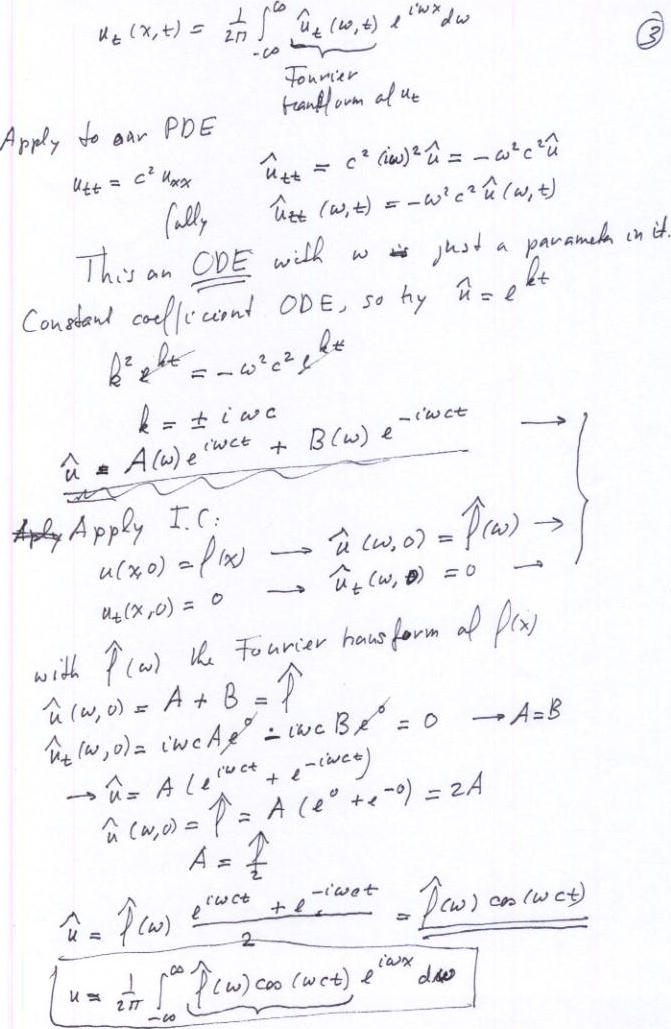 u_t (x,t) = 1/2π ∫_{-∞}^{∞} û_t (ω,t) e^{iωx} dω
③
Fourier
transform of u_t
Apply to our PDE
u_tt = c² u_xx û_tt = c² (iω)² û = -ω²c² û
fully û_tt (ω,t) = -ω²c² û(ω,t)
This an ODE with ω just a parameter in it.
Constant coefficient ODE, so try û = e^{kt}
k² e^{kt} = -ω²c² e^{kt}
k = ± iωc
û = A(ω) e^{iωct} + B(ω) e^{-iωct} →
Apply Apply I.C:
u(x,0) = f(x) → û(ω,0) = f̂(ω) →
u_t(x,0) = 0 → û_t(ω,0) = 0 →
with f̂(ω) the Fourier transform of f(x)
û(ω,0) = A + B = f̂
û_t(ω,0) = iωcAe⁰ - iωcBe⁰ = 0 → A=B
→ û = A(e^{iωct} + e^{-iωct})
û(ω,0) = f̂ = A(e⁰ + e^{-0}) = 2A
A = f̂/2
û = f̂(ω) (e^{iωct} + e^{-iωct})/2 = f̂(ω) cos(ωct)
u = 1/2π ∫_{-∞}^{∞} f̂(ω) cos(ωct) e^{iωx} dω